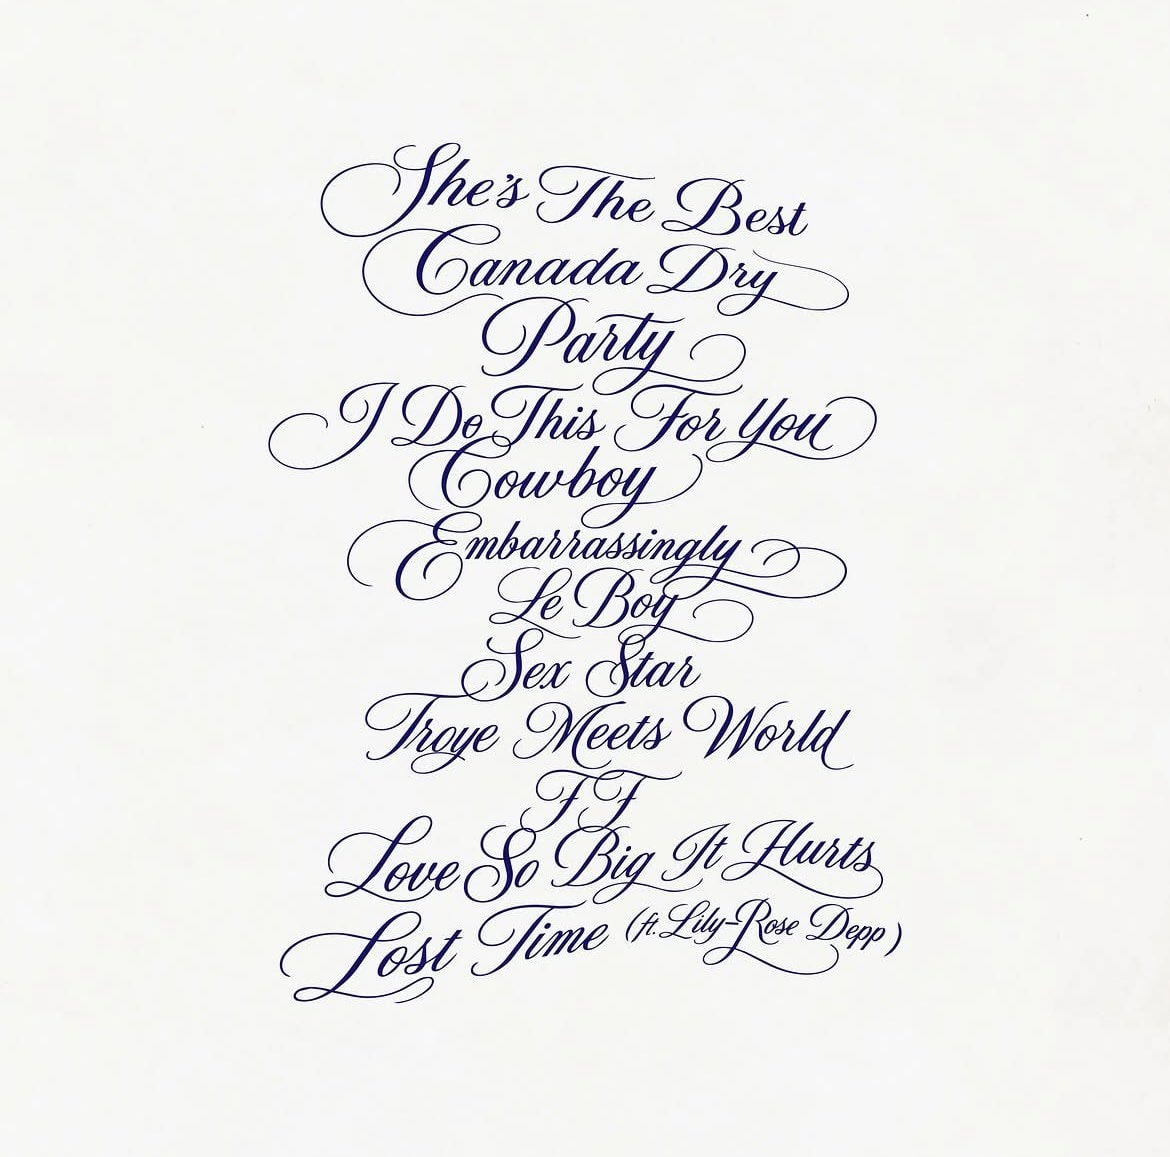 She's The Best
Canada Dry
Party
I Do This For You
Cowboy
Embarrassingly
Le Boy
Sex Star
Troye Meets World
FF
Love So Big It Hurts
Lost Time (ft. Lily-Rose Depp)